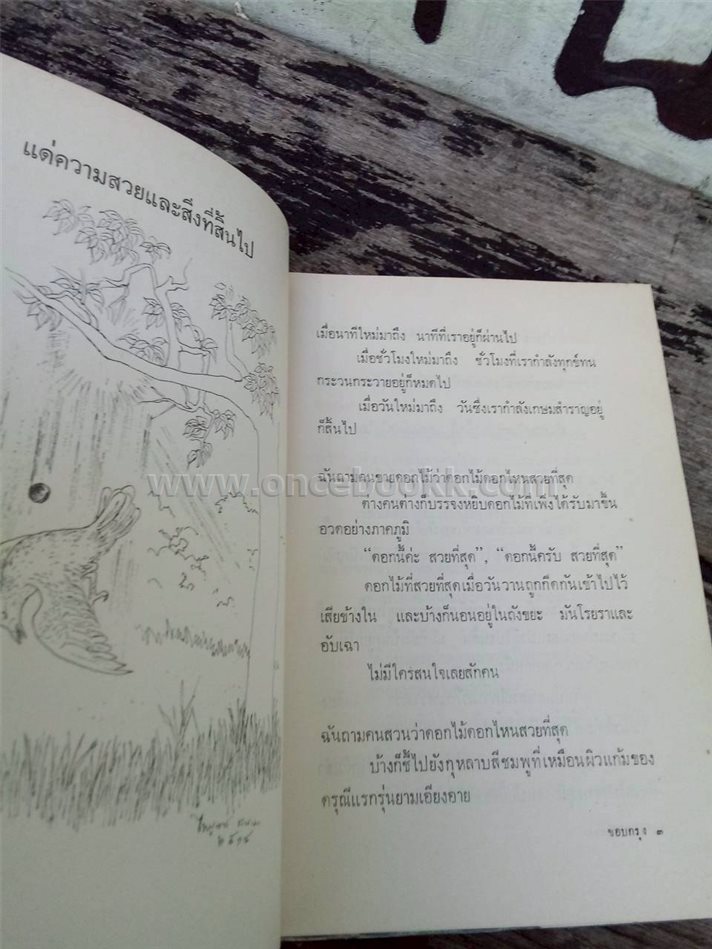 แด่ความสวยและสิ่งที่สิ้นไป
๒๕๑๕
เมื่อนาทีใหม่มาถึง นาทีที่เราอยู่ก็ผ่านไป
เมื่อชั่วโมงใหม่มาถึง ชั่วโมงที่เรากำลังทุกข์ทน
กระวนกระวายอยู่ก็หมดไป
เมื่อวันใหม่มาถึง วันซึ่งเรากำลังเกษมสำราญอยู่
ก็สิ้นไป
ฉันถามคนขายดอกไม้ว่าดอกไม้ดอกไหนสวยที่สุด
www.oncebookk.com
ต่างคนต่างก็บรรจงหยิบดอกไม้ที่เพิ่งได้รับมาขึ้น
อวดอย่างภาคภูมิ
“ดอกนี้ค่ะ สวยที่สุด”, “ดอกนี้ครับ สวยที่สุด”
ดอกไม้ที่สวยที่สุดเมื่อวันวานถูกกีดกันเข้าไปไว้
เสียข้างใน และบ้างก็นอนอยู่ในถังขยะ มันโรยราและ
อับเฉา
ไม่มีใครสนใจเลยสักคน
ฉันถามคนสวนว่าดอกไม้ดอกไหนสวยที่สุด
บ้างก็ชี้ไปยังกุหลาบสีชมพูที่เหมือนผิวแก้มของ
ดรุณีแรกรุ่นยามเอียงอาย
ขอบกรุง ๓